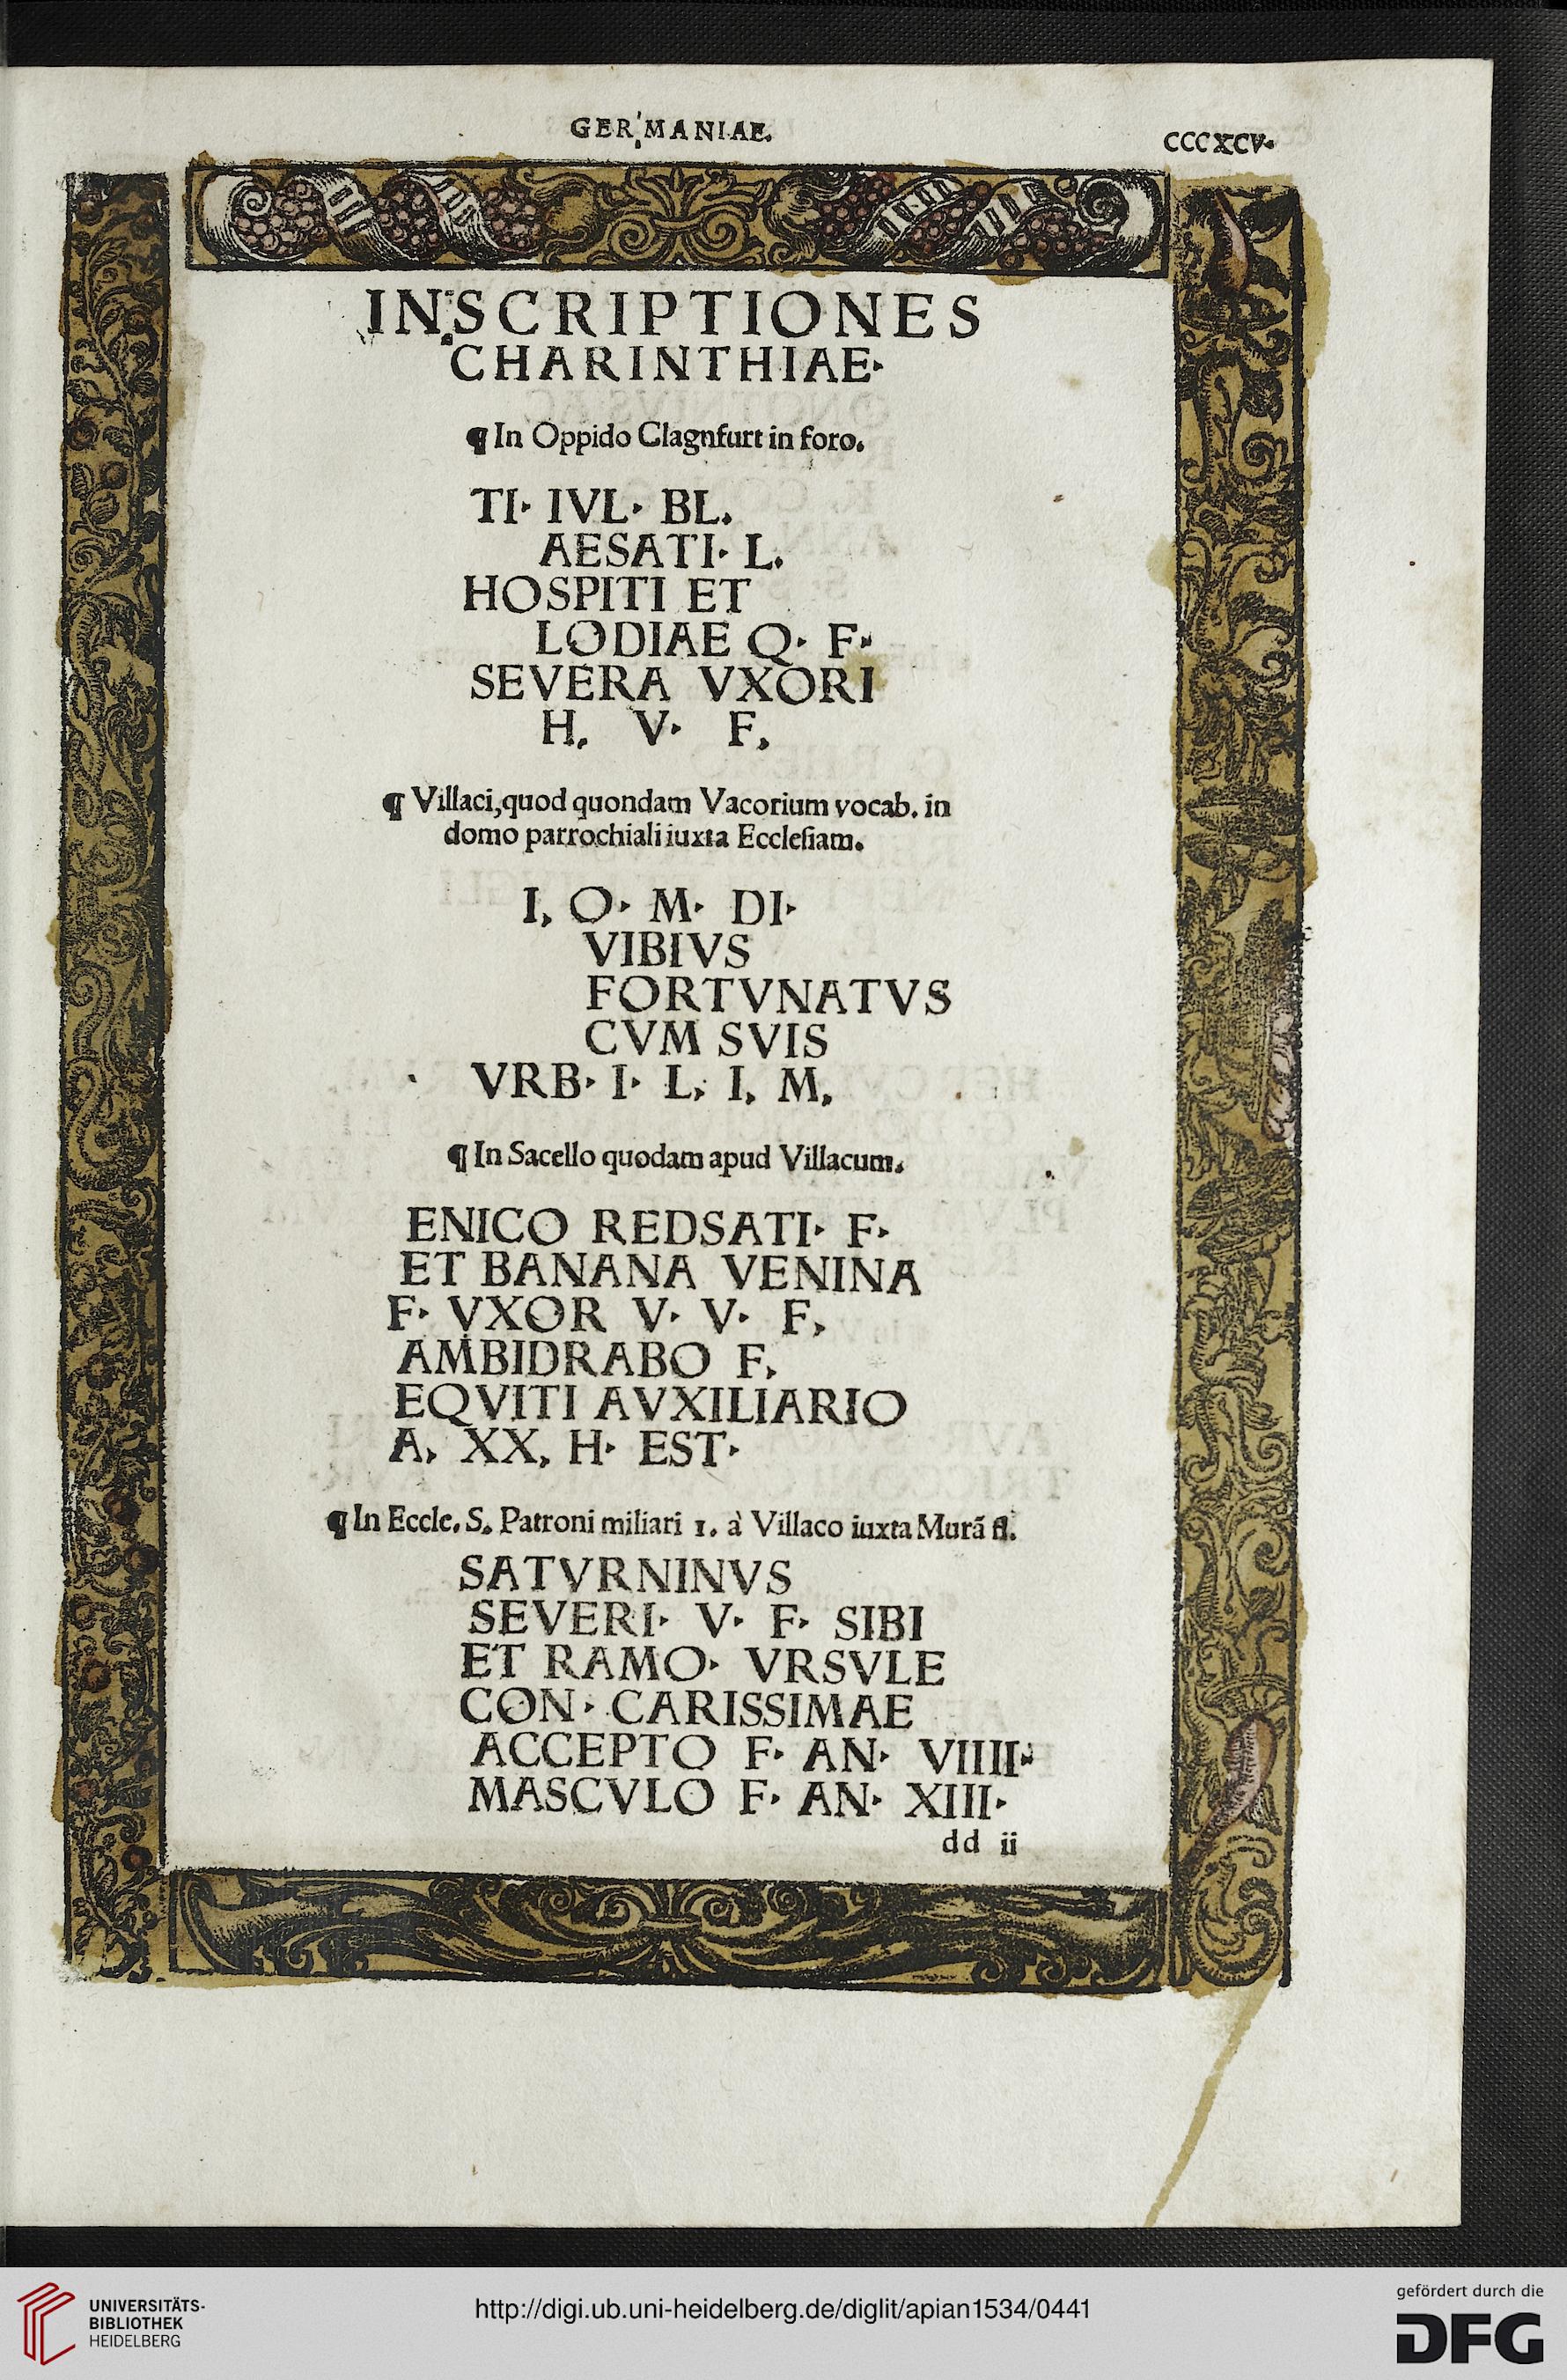 GERMANIAE.
CCCXCV.
INSCRIPTIONES
CHARINTHIAE.
¶ In Oppido Clagnfurt in foro.
TI. IVL. BL.
AESATI. L.
HOSPITI ET
LODIAE Q. F.
SEVERA VXORI
H. V. F.
¶ Villaci, quod quondam Vacorium vocab. in
domo parrochiali iuxta Eccleſiam.
I. O. M. DI.
VIBIVS
FORTVNATVS
CVM SVIS
VRB. I. L. I. M.
¶ In Sacello quodam apud Villacum.
ENICO REDSATI. F.
ET BANANA VENINA
F. VXOR V. V. F.
AMBIDRABO F.
EQVITI AVXILIARIO
A. XX. H. EST.
¶ In Eccle. S. Patroni miliari 1. à Villaco iuxta Murã fl.
SATVRNINVS
SEVERI. V. F. SIBI
ET RAMO. VRSVLE
CON. CARISSIMAE
ACCEPTO F. AN. VIIII.
MASCVLO F. AN. XIIII.
dd ii
UNIVERSITÄTS-
BIBLIOTHEK
HEIDELBERG
http://digi.ub.uni-heidelberg.de/diglit/apian1534/0441
gefördert durch die
DFG